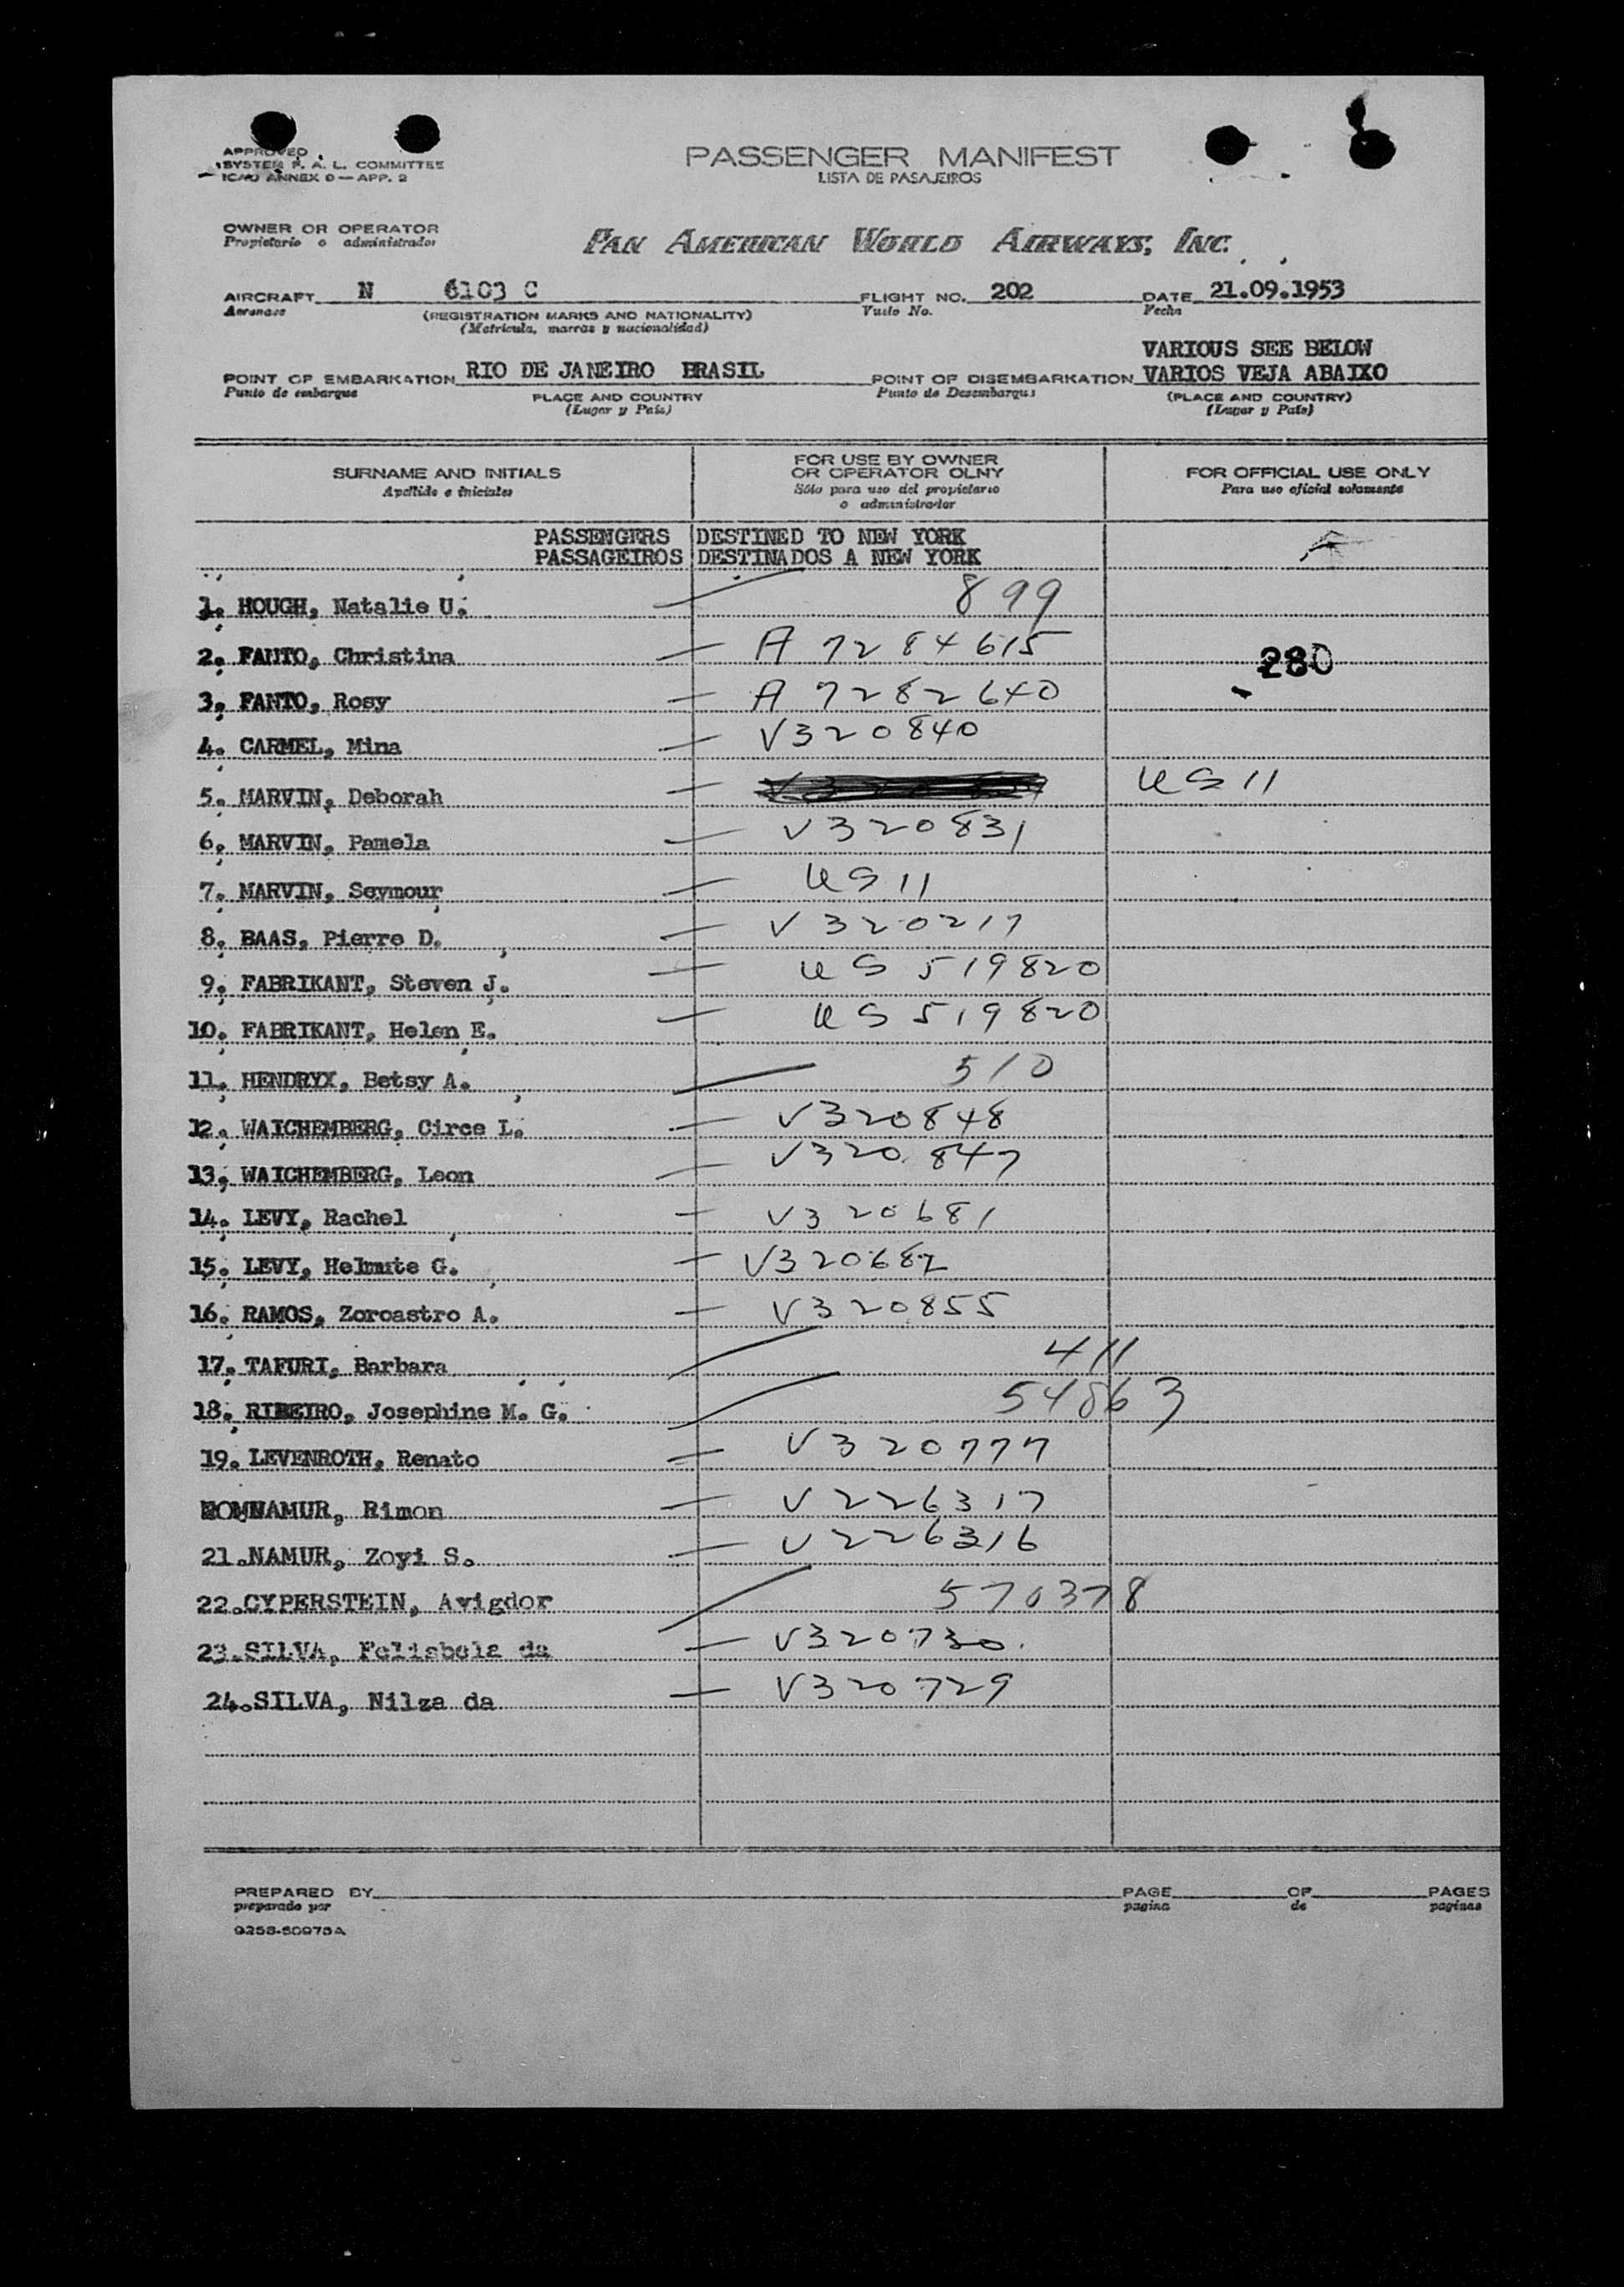 APPROVED
SYSTEM F. A. L. COMMITTEE
ICAO ANNEX 9 — APP. 2
PASSENGER MANIFEST
LISTA DE PASAJEIROS
OWNER OR OPERATOR
Propietario o administrador
PAN AMERICAN WORLD AIRWAYS, INC.
AIRCRAFT N 6103 C FLIGHT NO. 202 DATE 21.09.1953
Aeronave (REGISTRATION MARKS AND NATIONALITY) Vuelo No. Fecha
(Matricula, marcas y nacionalidad)
VARIOUS SEE BELOW
POINT OF EMBARKATION RIO DE JANEIRO BRASIL POINT OF DISEMBARKATION VARIOS VEJA ABAIXO
Punto de embarque PLACE AND COUNTRY Punto de Desembarque (PLACE AND COUNTRY)
(Lugar y País) (Lugar y País)
SURNAME AND INITIALS
Apellido e iniciales
FOR USE BY OWNER
OR OPERATOR OLNY
Sólo para uso del propietario
o administrador
FOR OFFICIAL USE ONLY
Para uso oficial solamente
PASSENGERS DESTINED TO NEW YORK
PASSAGEIROS DESTINADOS A NEW YORK
1. HOUGH, Natalie U. 899
2. FANTO, Christina A 7284615 280
3. FANTO, Rosy A 7282640
4. CARMEL, Mina V320840
5. MARVIN, Deborah US 11
6. MARVIN, Pamela V320831
7. MARVIN, Seymour US 11
8. BAAS, Pierre D. V 320217
9. FABRIKANT, Steven J. US 519820
10. FABRIKANT, Helen E. US 519820
11. HENDRYX, Betsy A. 510
12. WAICHEMBERG, Circe L. V320848
13. WAICHEMBERG, Leon V320847
14. LEVY, Rachel V320681
15. LEVY, Helmute G. V320682
16. RAMOS, Zoroastro A. V320855
17. TAFURI, Barbara 411
18. RIBEIRO, Josephine M. G. 54863
19. LEVENROTH, Renato V320777
NAMUR, Rimon V226317
21.NAMUR, Zoyi S. V226316
22.CYPERSTEIN, Avigdor 570378
23.SILVA, Felisbela da V320730
24.SILVA, Nilza da V320729
PREPARED BY PAGE OF PAGES
preparado por pagina de paginas
9258-50975A